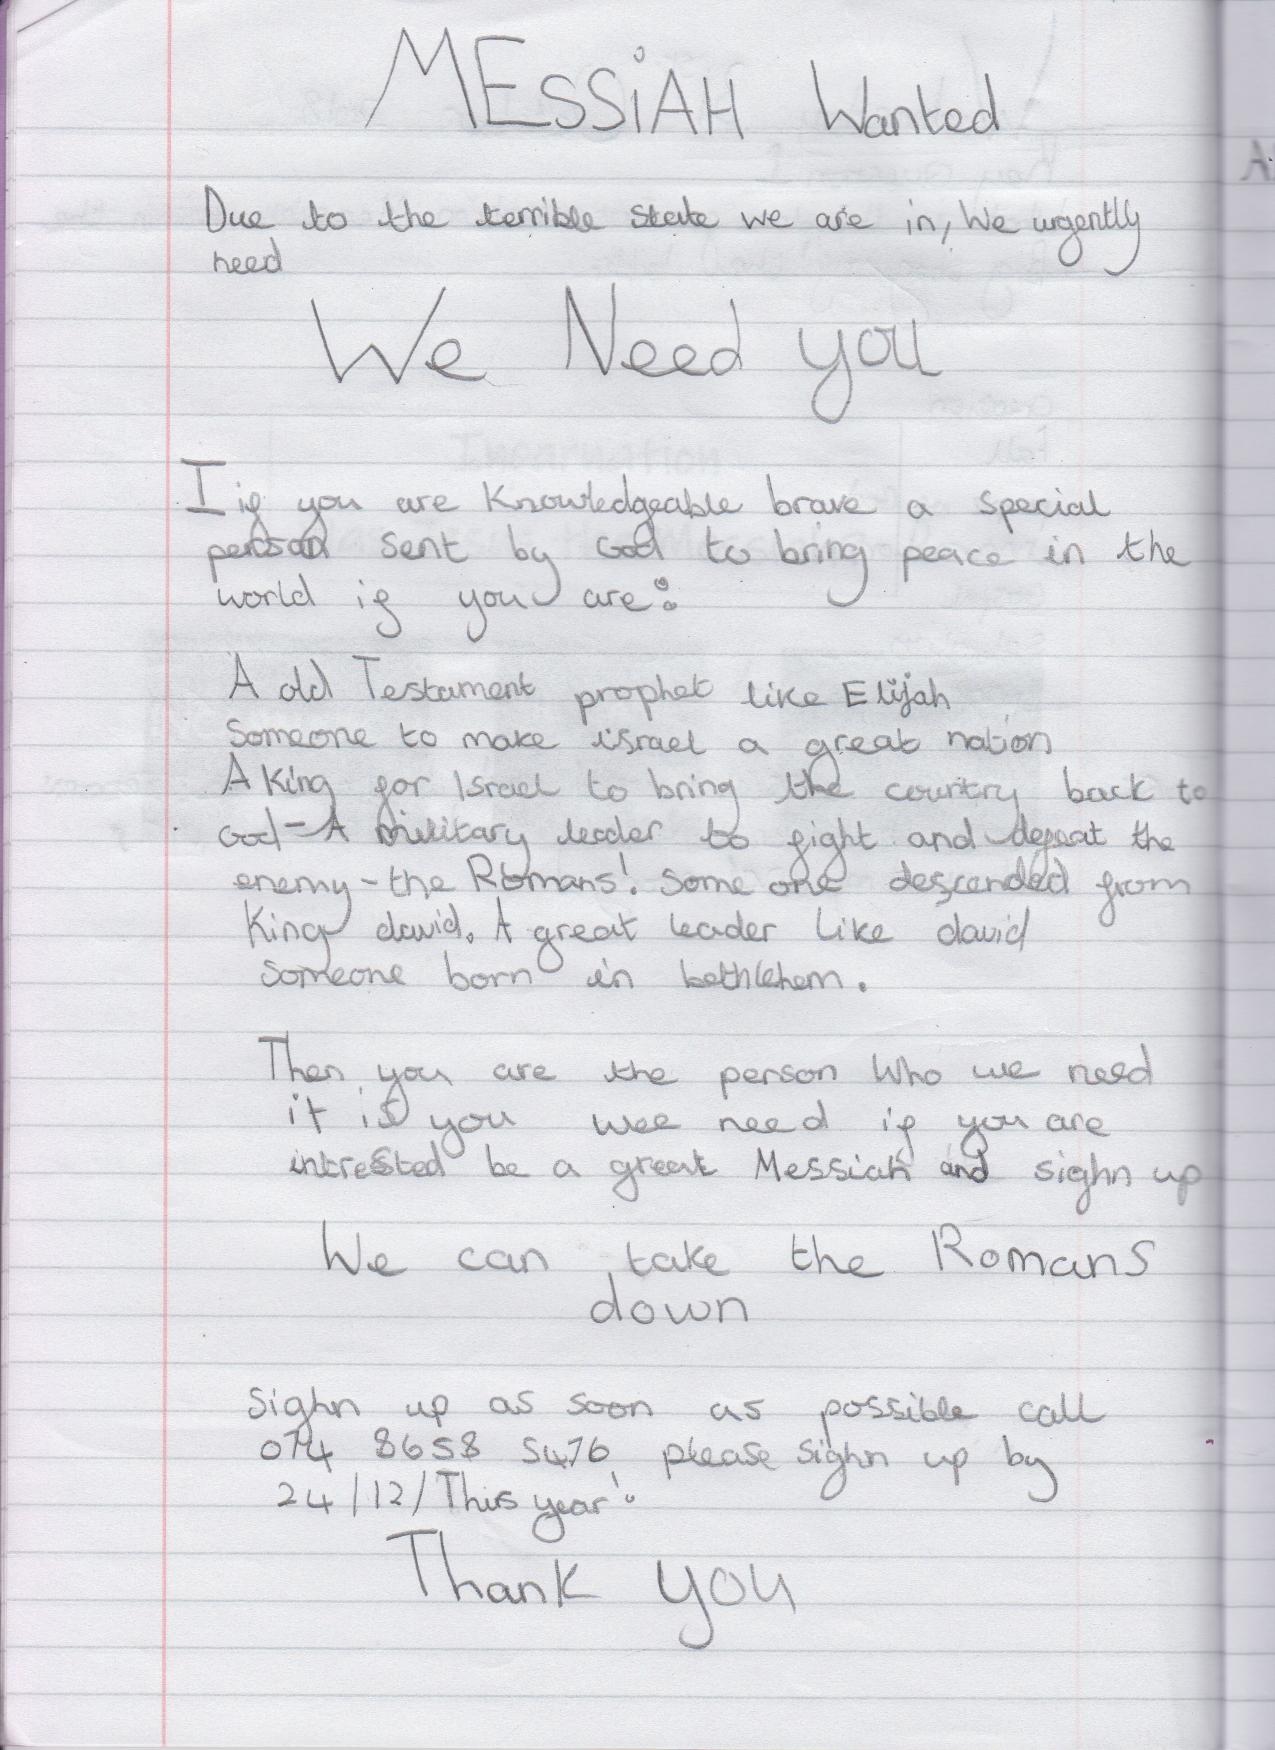 MESSiAH Wanted
Due to the terrible state we are in, We urgently
need
We Need you
I if you are Knowledgeable brave a special
person sent by God to bring peace in the
world if you are:
A old Testament prophet like Elijah
Someone to make israel a great nation
A King for Israel to bring the country back to
God - A military leader to fight and defeat the
enemy - the Romans! Some one descended from
King david. A great leader like david
someone born in bethlehem.
Then you are the person Who we need
it is you wee need if you are
intrested be a great Messiah and sighn up
We can take the Romans
down
Sighn up as soon as possible call
074 8658 5476 please sighn up by
24/12/This year!
Thank you